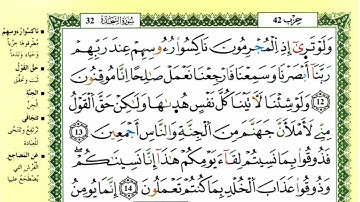 حزب 42
سُورَةُ السَّجْدَةِ 32
وَلَوْ تَرَىٰٓ إِذِ ٱلْمُجْرِمُونَ نَاكِسُوا۟ رُءُوسِهِمْ عِندَ رَبِّهِمْ
رَبَّنَآ أَبْصَرْنَا وَسَمِعْنَا فَٱرْجِعْنَا نَعْمَلْ صَٰلِحًا إِنَّا مُوقِنُونَ
12 وَلَوْ شِئْنَا لَءَاتَيْنَا كُلَّ نَفْسٍ هُدَىٰهَا وَلَٰكِنْ حَقَّ ٱلْقَوْلُ
مِنِّى لَأَمْلَأَنَّ جَهَنَّمَ مِنَ ٱلْجِنَّةِ وَٱلنَّاسِ أَجْمَعِينَ 13
فَذُوقُوا۟ بِمَا نَسِيتُمْ لِقَآءَ يَوْمِكُمْ هَٰذَآ إِنَّا نَسِينَٰكُمْ
وَذُوقُوا۟ عَذَابَ ٱلْخُلْدِ بِمَا كُنتُمْ تَعْمَلُونَ 14 إِنَّمَا يُؤْمِنُ
ناكسوا رءوسهم
مطرقوها خزياً
وحياء وندماً
حق القول
ثبت وتحقق
الجنة
الجن
تتجافى
ترتفع وتتنحى
للعبادة
عن المضاجع
الفرش التي
يضطجع عليها